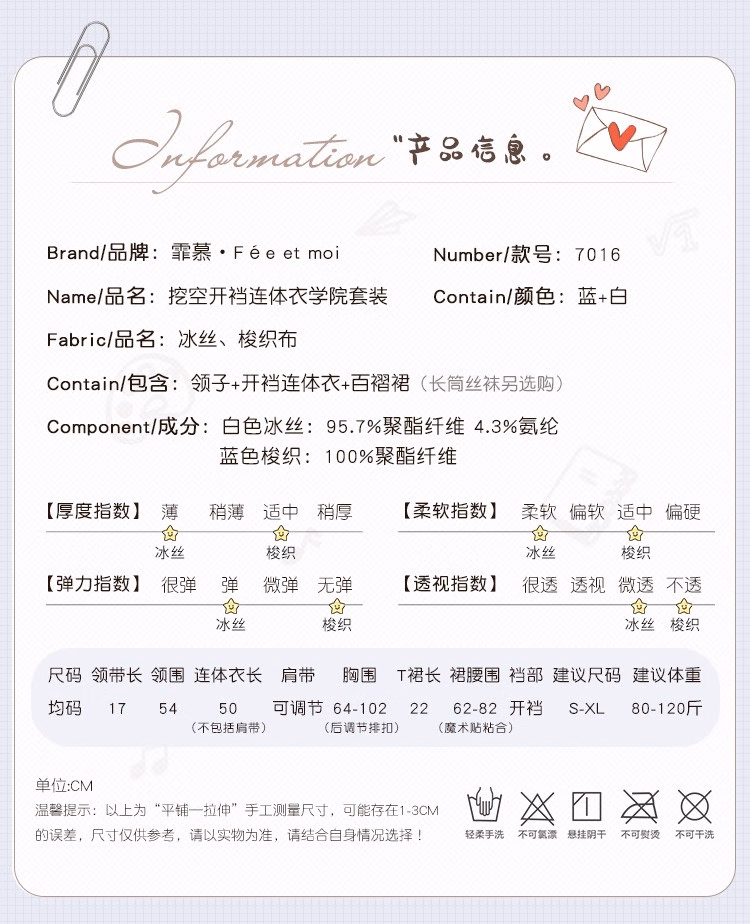 Information "产品信息。
Brand/品牌：霏慕·Fée et moi Number/款号：7016
Name/品名：挖空开裆连体衣学院套装 Contain/颜色：蓝+白
Fabric/品名：冰丝、梭织布
Contain/包含：领子+开裆连体衣+百褶裙（长筒丝袜另选购）
Component/成分：白色冰丝：95.7%聚酯纤维 4.3%氨纶
蓝色梭织：100%聚酯纤维
【厚度指数】 薄 稍薄 适中 稍厚 【柔软指数】 柔软 偏软 适中 偏硬
冰丝 梭织 冰丝 梭织
【弹力指数】 很弹 弹 微弹 无弹 【透视指数】 很透 透视 微透 不透
冰丝 梭织 冰丝 梭织
尺码 领带长 领围 连体衣长 肩带 胸围 T裙长 裙腰围 裆部 建议尺码 建议体重
均码 17 54 50 可调节 64-102 22 62-82 开裆 S-XL 80-120斤
（不包括肩带） （后调节排扣） （魔术贴粘合）
单位:CM
温馨提示：以上为“平铺一拉伸”手工测量尺寸，可能存在1-3CM
的误差，尺寸仅供参考，请以实物为准，请结合自身情况选择！
轻柔手洗 不可氯漂 悬挂阴干 不可熨烫 不可干洗